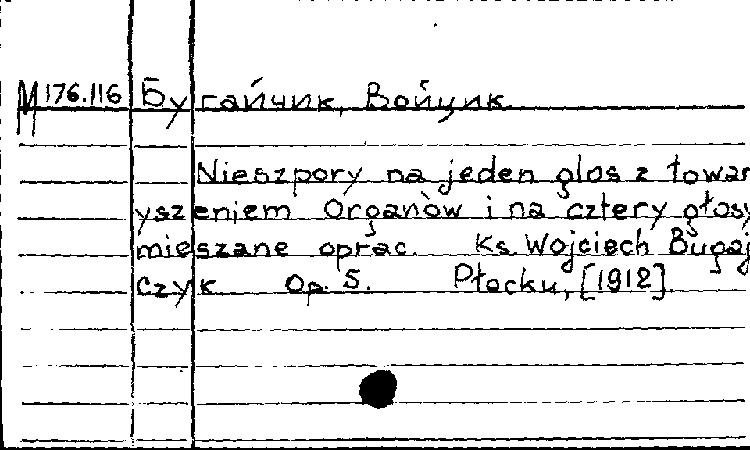 М 176.116 Бугайчик, Войцик.
Nieszpory na jeden glos z towar
yszeniem Organòw i na cztery głosy
mieszane oprac. Ks. Wojciech Bugaj
czyk Op. 5. Płocku, [1912].